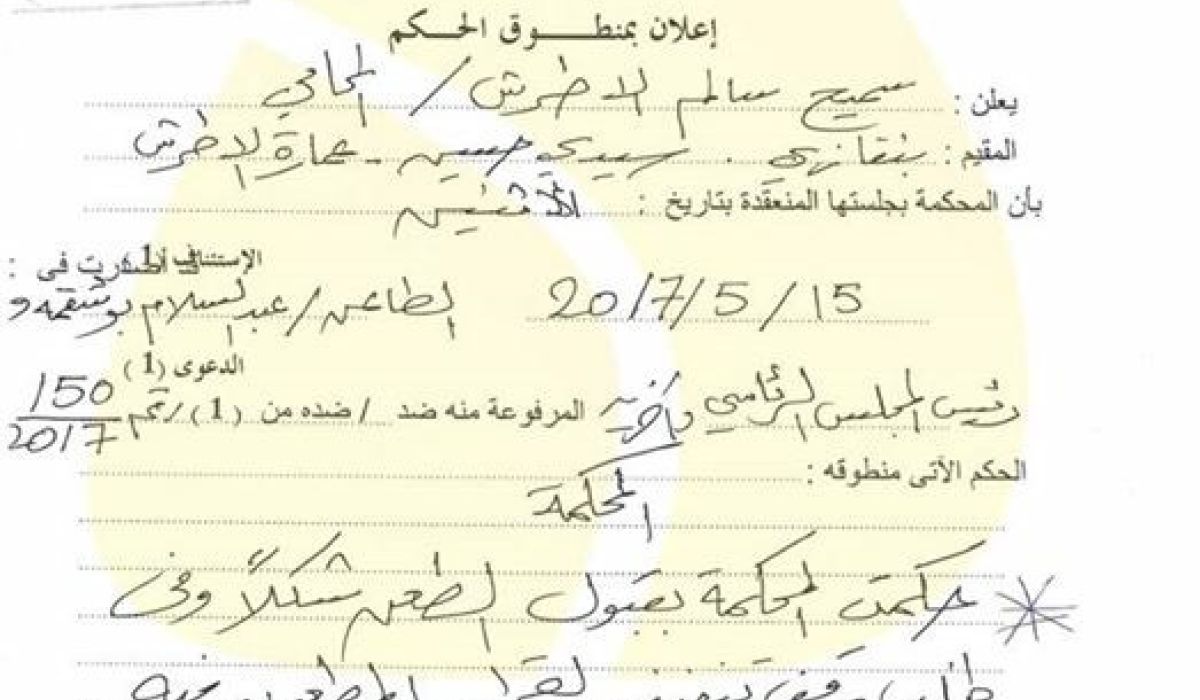 إعلان بمنطـــوق الحـكم
يعلن : سميح سالم الاطرش / المحامي
المقيم : بنغازي . سيدي حسين - عمارة الاطرش
بأن المحكمة بجلستها المنعقدة بتاريخ : الاثنين
الإستئناف 1 أصدرت فى :
15 / 5 / 2017 الطاعن / عبدالسلام بوشقمه و
الدعوى (1)
رئيس المجلس الرئاسي وآخرين المرفوعة منه ضد / ضده من (1) / رقم 150 / 2017
الحكم الآتى منطوقه :
المحكمة
حكمت المحكمة بقبول الطعن شكلاً وفى
تنفيذ القرار المطعون فيه